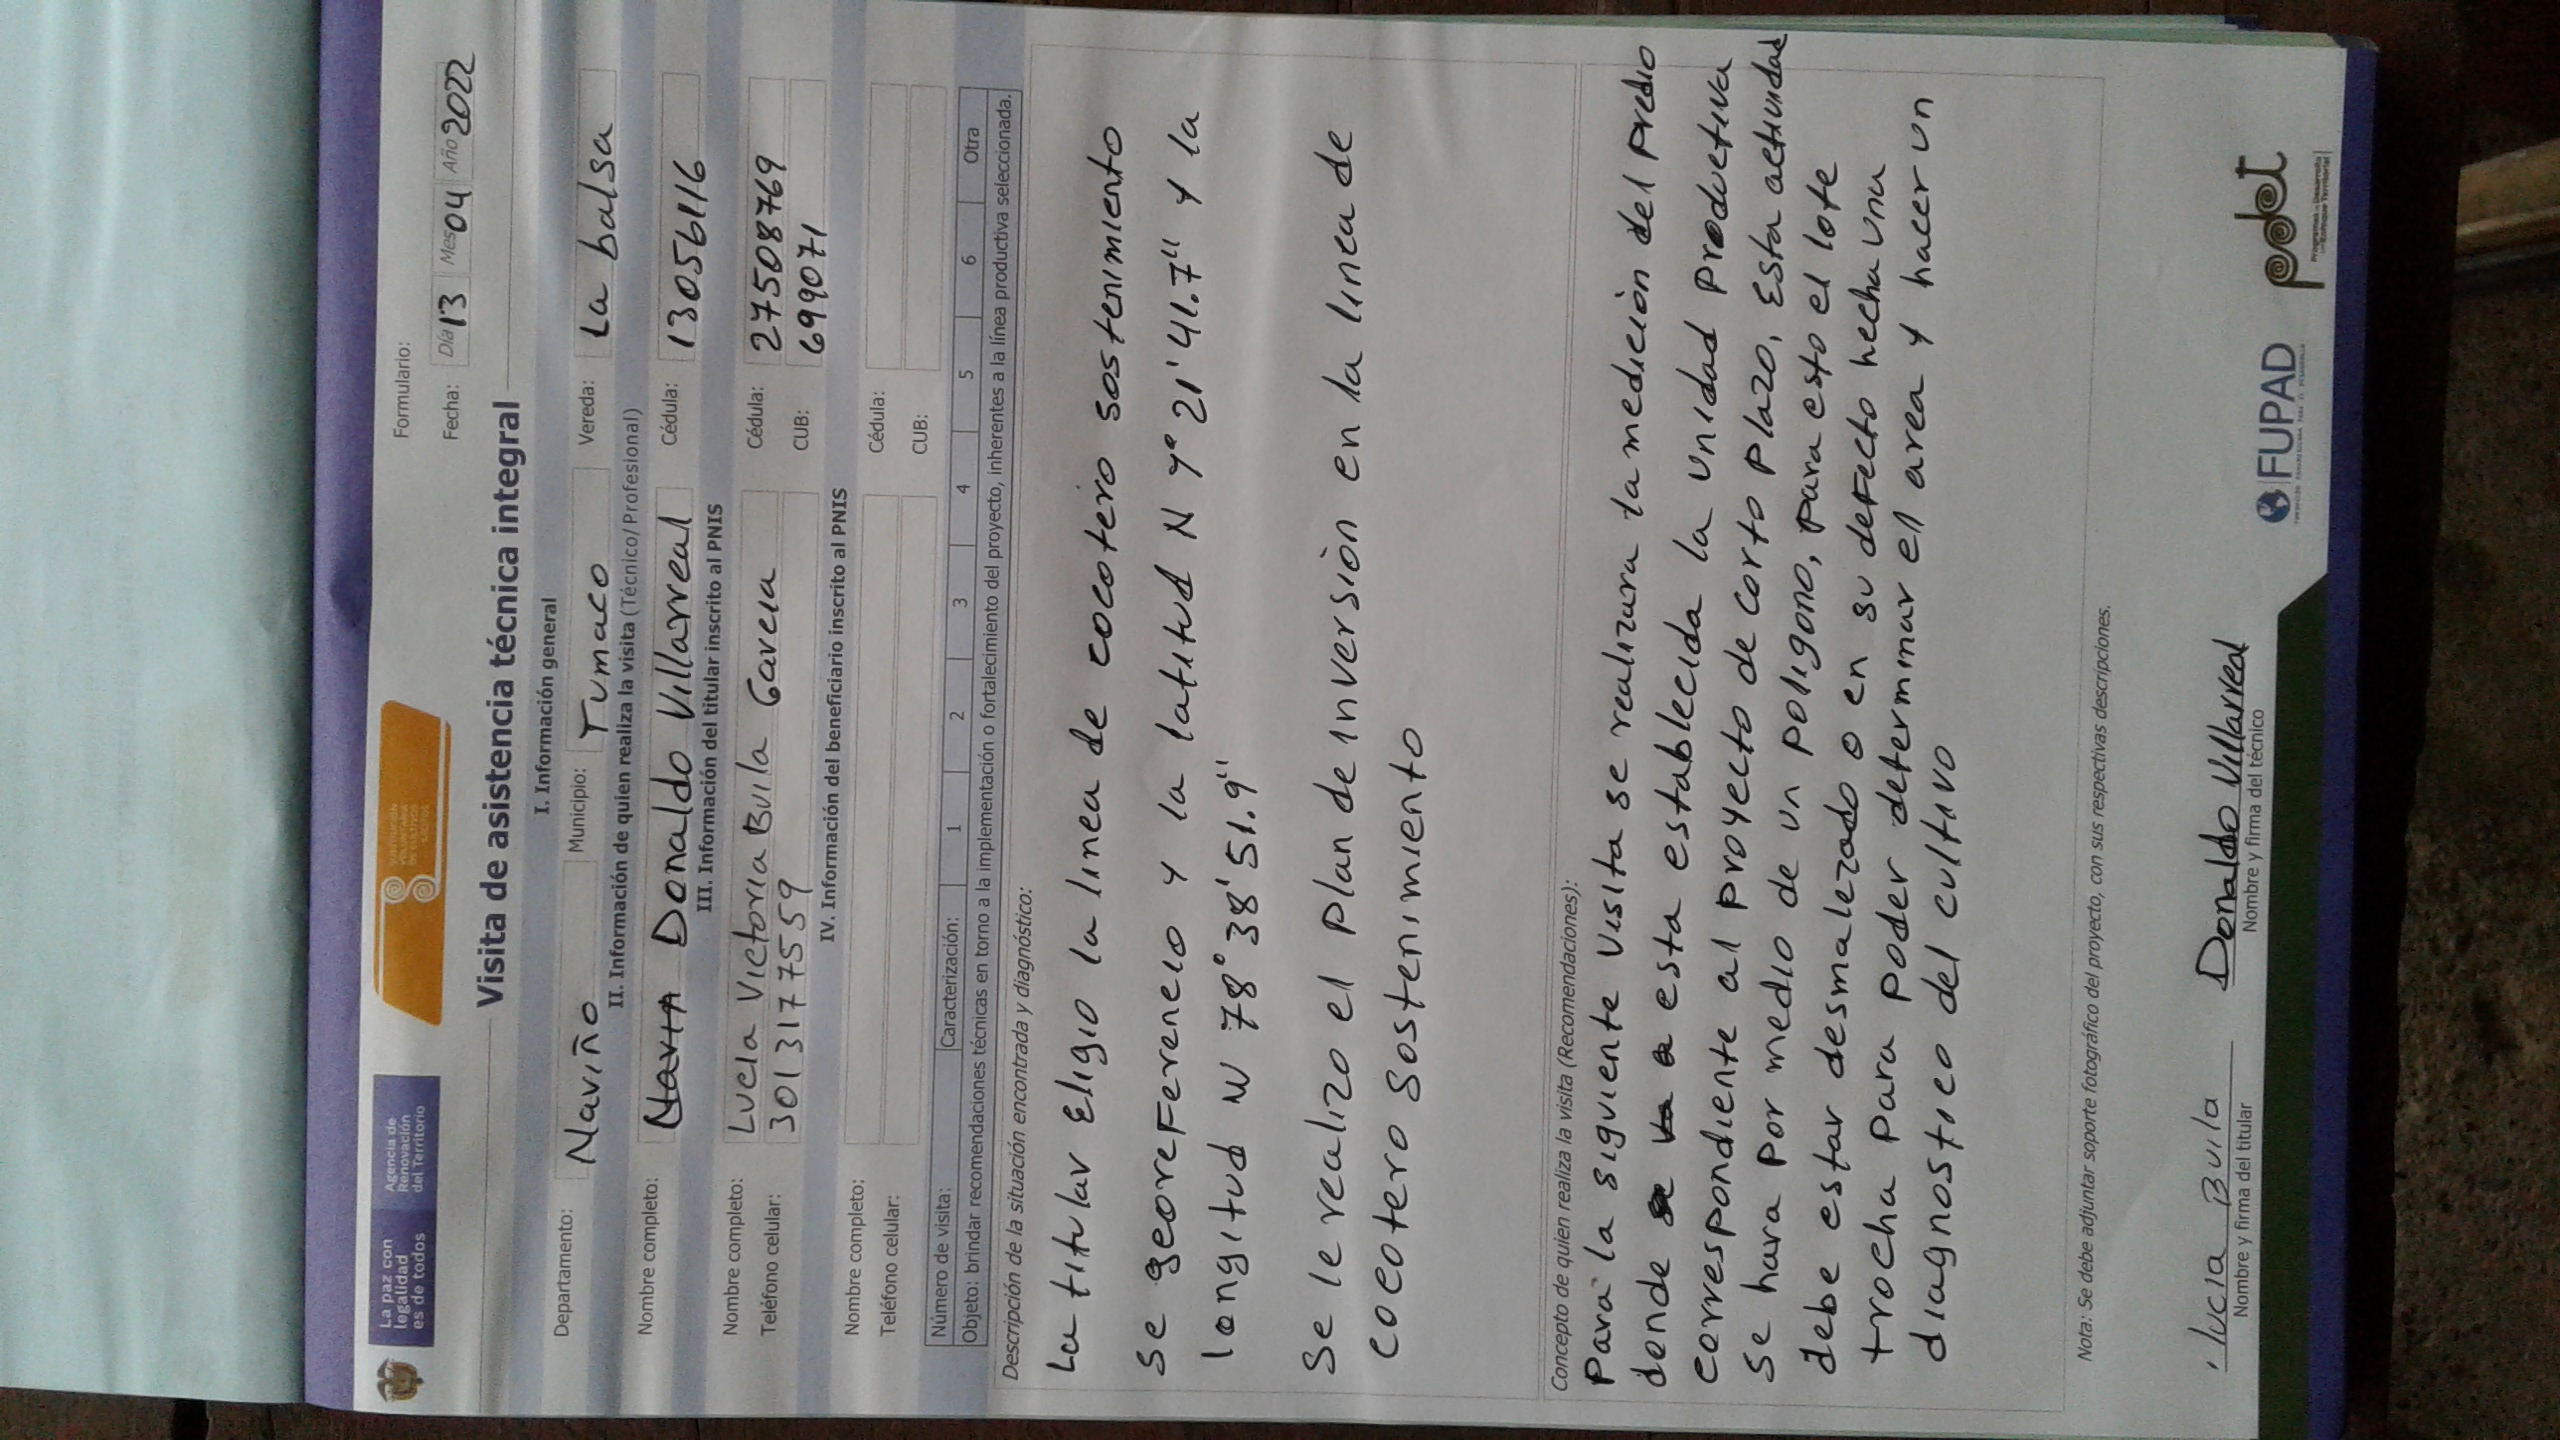 La paz con
legalidad
es de todos
Agencia de
Renovación
del Territorio
SUSTITUCIÓN
VOLUNTARIA
DE CULTIVOS
ILÍCITOS
Formulario:
Fecha: Día 13 Mes 04 Año 2022
Visita de asistencia técnica integral
I. Información general
Departamento: Nariño Municipio: Tumaco Vereda: La balsa
II. Información de quien realiza la visita (Técnico/Profesional)
Nombre completo: Donaldo Villarreal Cédula: 13056116
III. Información del titular inscrito al PNIS
Nombre completo: Lucia Victoria Buila Garcia Cédula: 27508769
Teléfono celular: 3013177559 CUB: 699071
IV. Información del beneficiario inscrito al PNIS
Nombre completo: Cédula:
Teléfono celular: CUB:
Número de visita: Caracterización: 1 2 3 4 5 6 Otra
Objeto: brindar recomendaciones técnicas en torno a la implementación o fortalecimiento del proyecto, inherentes a la línea productiva seleccionada.
Descripción de la situación encontrada y diagnóstico:
La titular Eligio la linea de cocotero sostenimiento
se georeferencio y la latitud N 1° 21' 41.7" y la
longitud W 78° 38' 51.9"
Se le realizo el plan de inversión en la linea de
cocotero sostenimiento
Concepto de quien realiza la visita (Recomendaciones):
Para la siguiente visita se realizara la medición del predio
donde esta establecida la unidad productiva
correspondiente al proyecto de corto plazo, Esta actividad
se hara por medio de un poligono, para esto el lote
debe estar desmalezado o en su defecto hecha una
trocha para poder determinar el area y hacer un
diagnostico del cultivo
Nota: Se debe adjuntar soporte fotográfico del proyecto, con sus respectivas descripciones.
lucia Buila
Nombre y firma del titular
Donaldo Villarreal
Nombre y firma del técnico
FUPAD
pdet
Programas de Desarrollo
con Enfoque Territorial